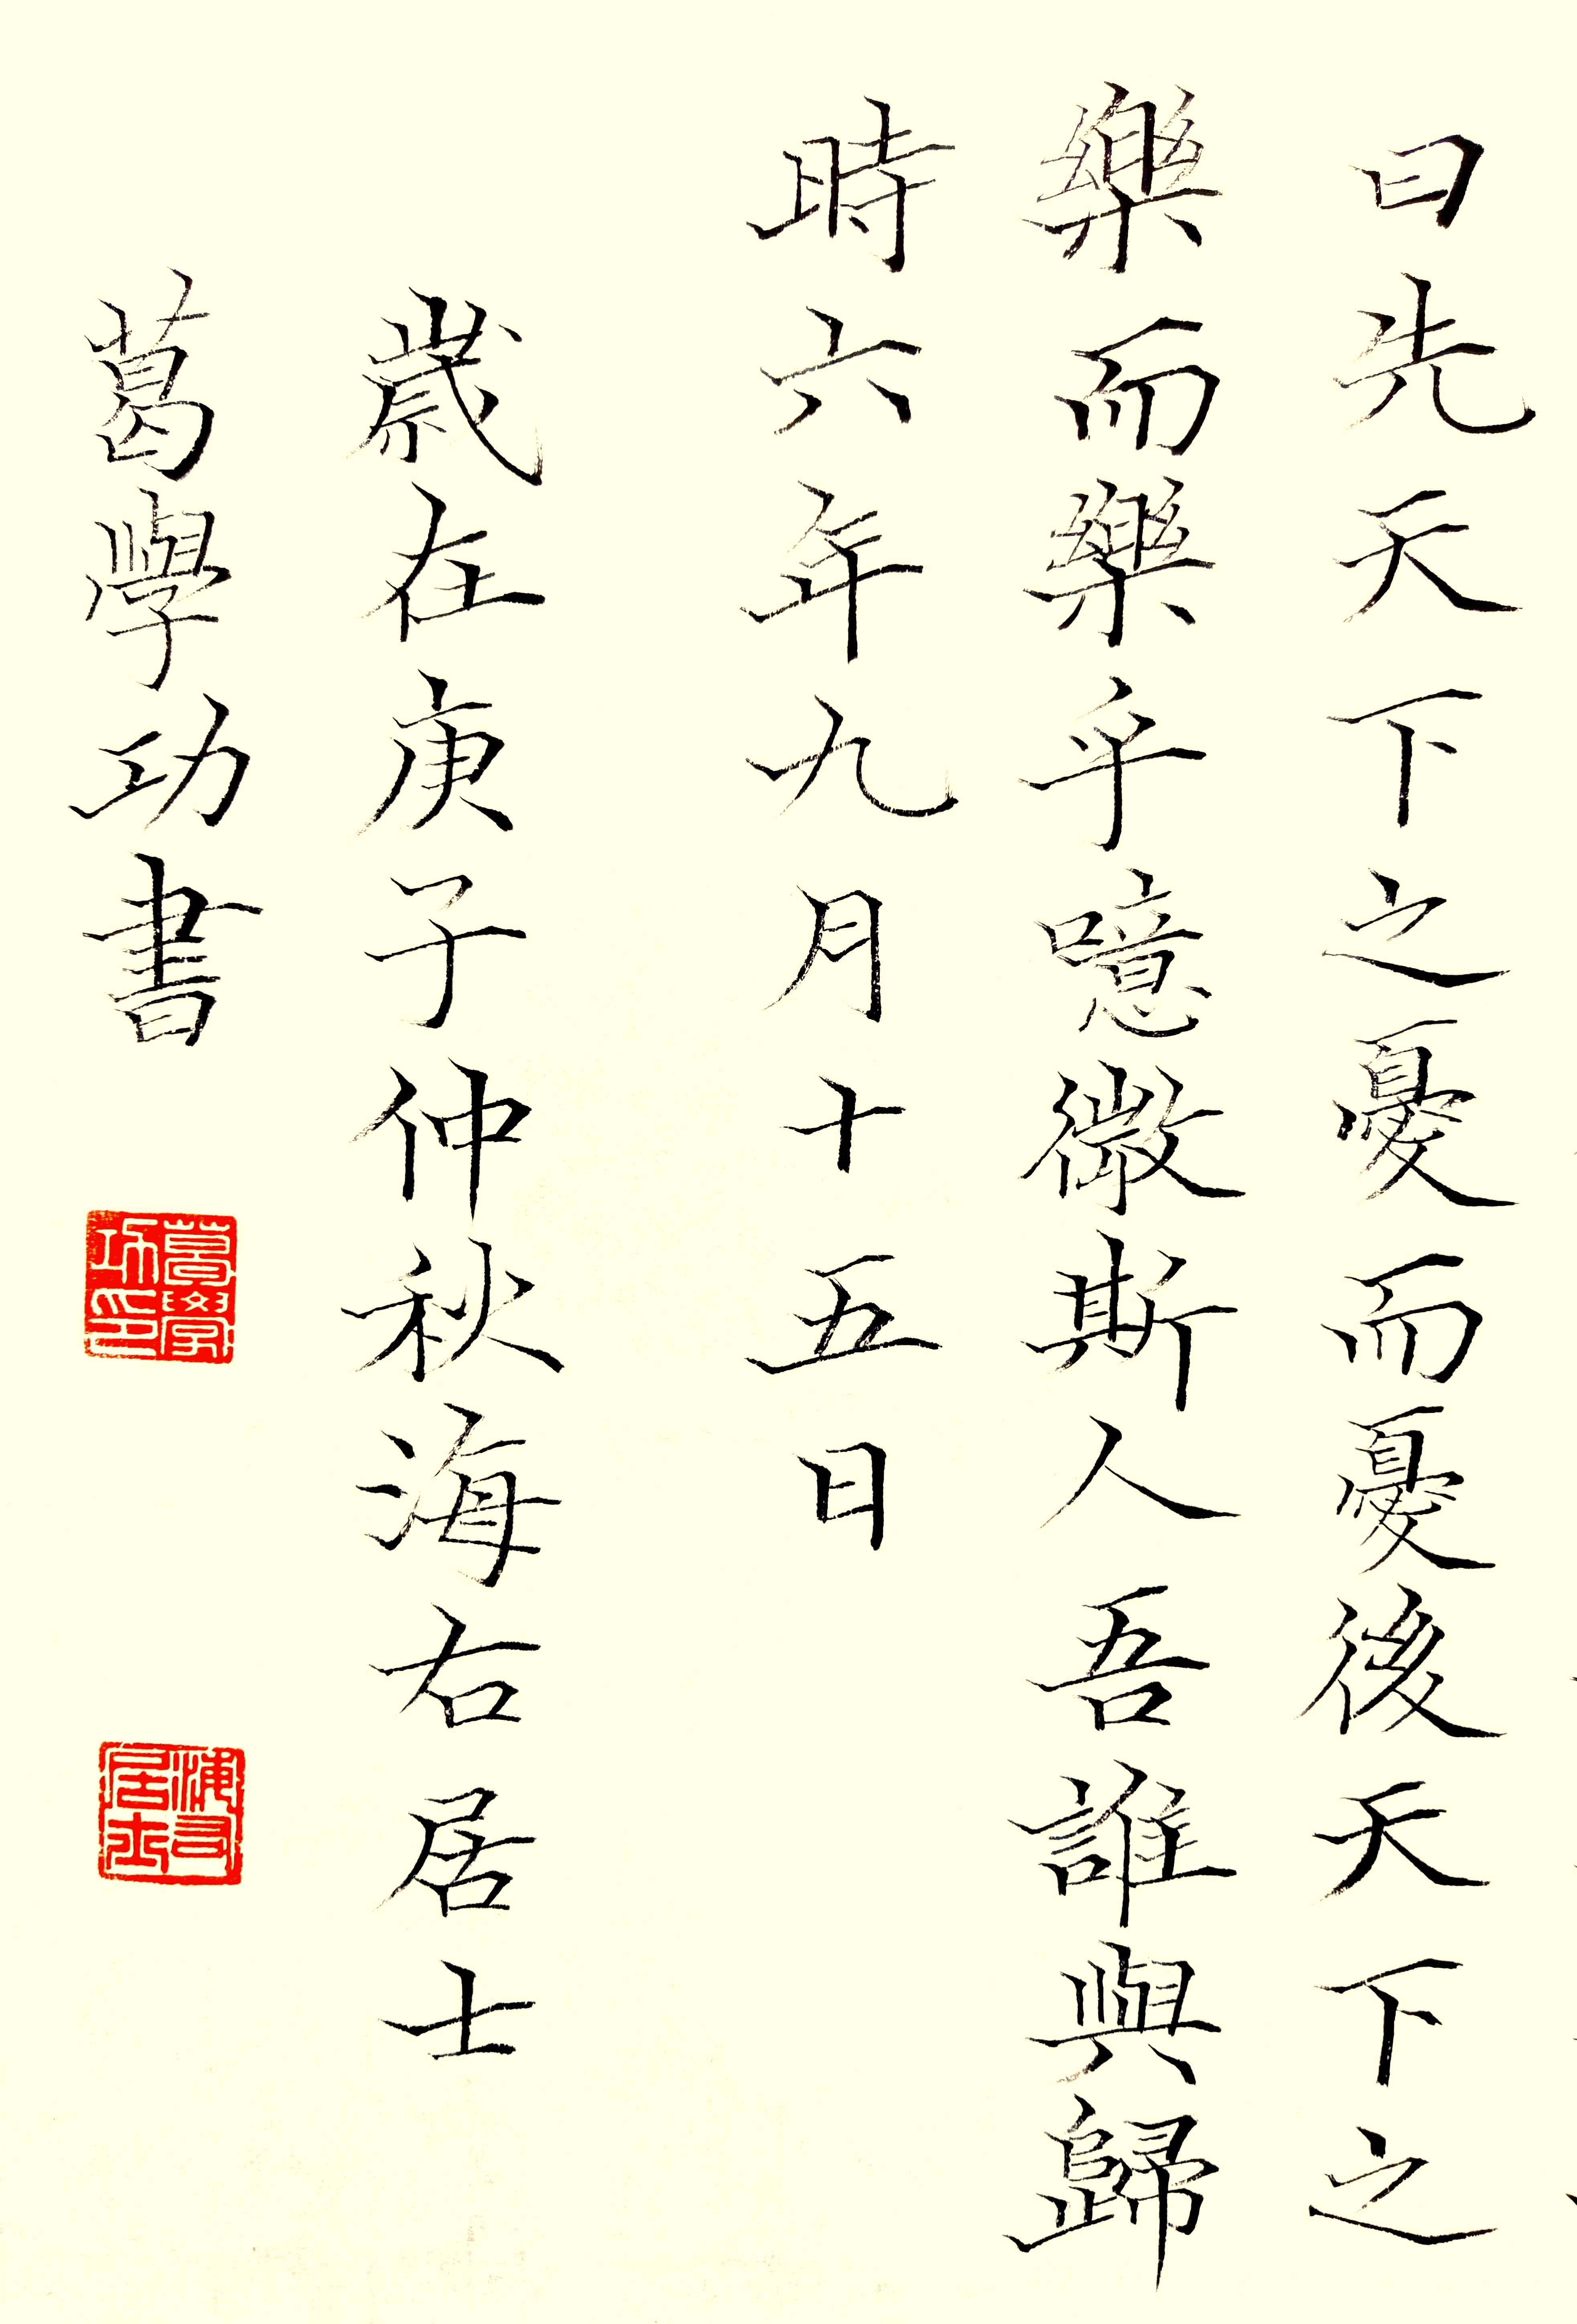 曰先天下之憂而憂後天下之
樂而樂乎噫微斯人吾誰與歸
時六年九月十五日
歲在庚子仲秋海右居士
葛學功書
葛學功印
海右居士